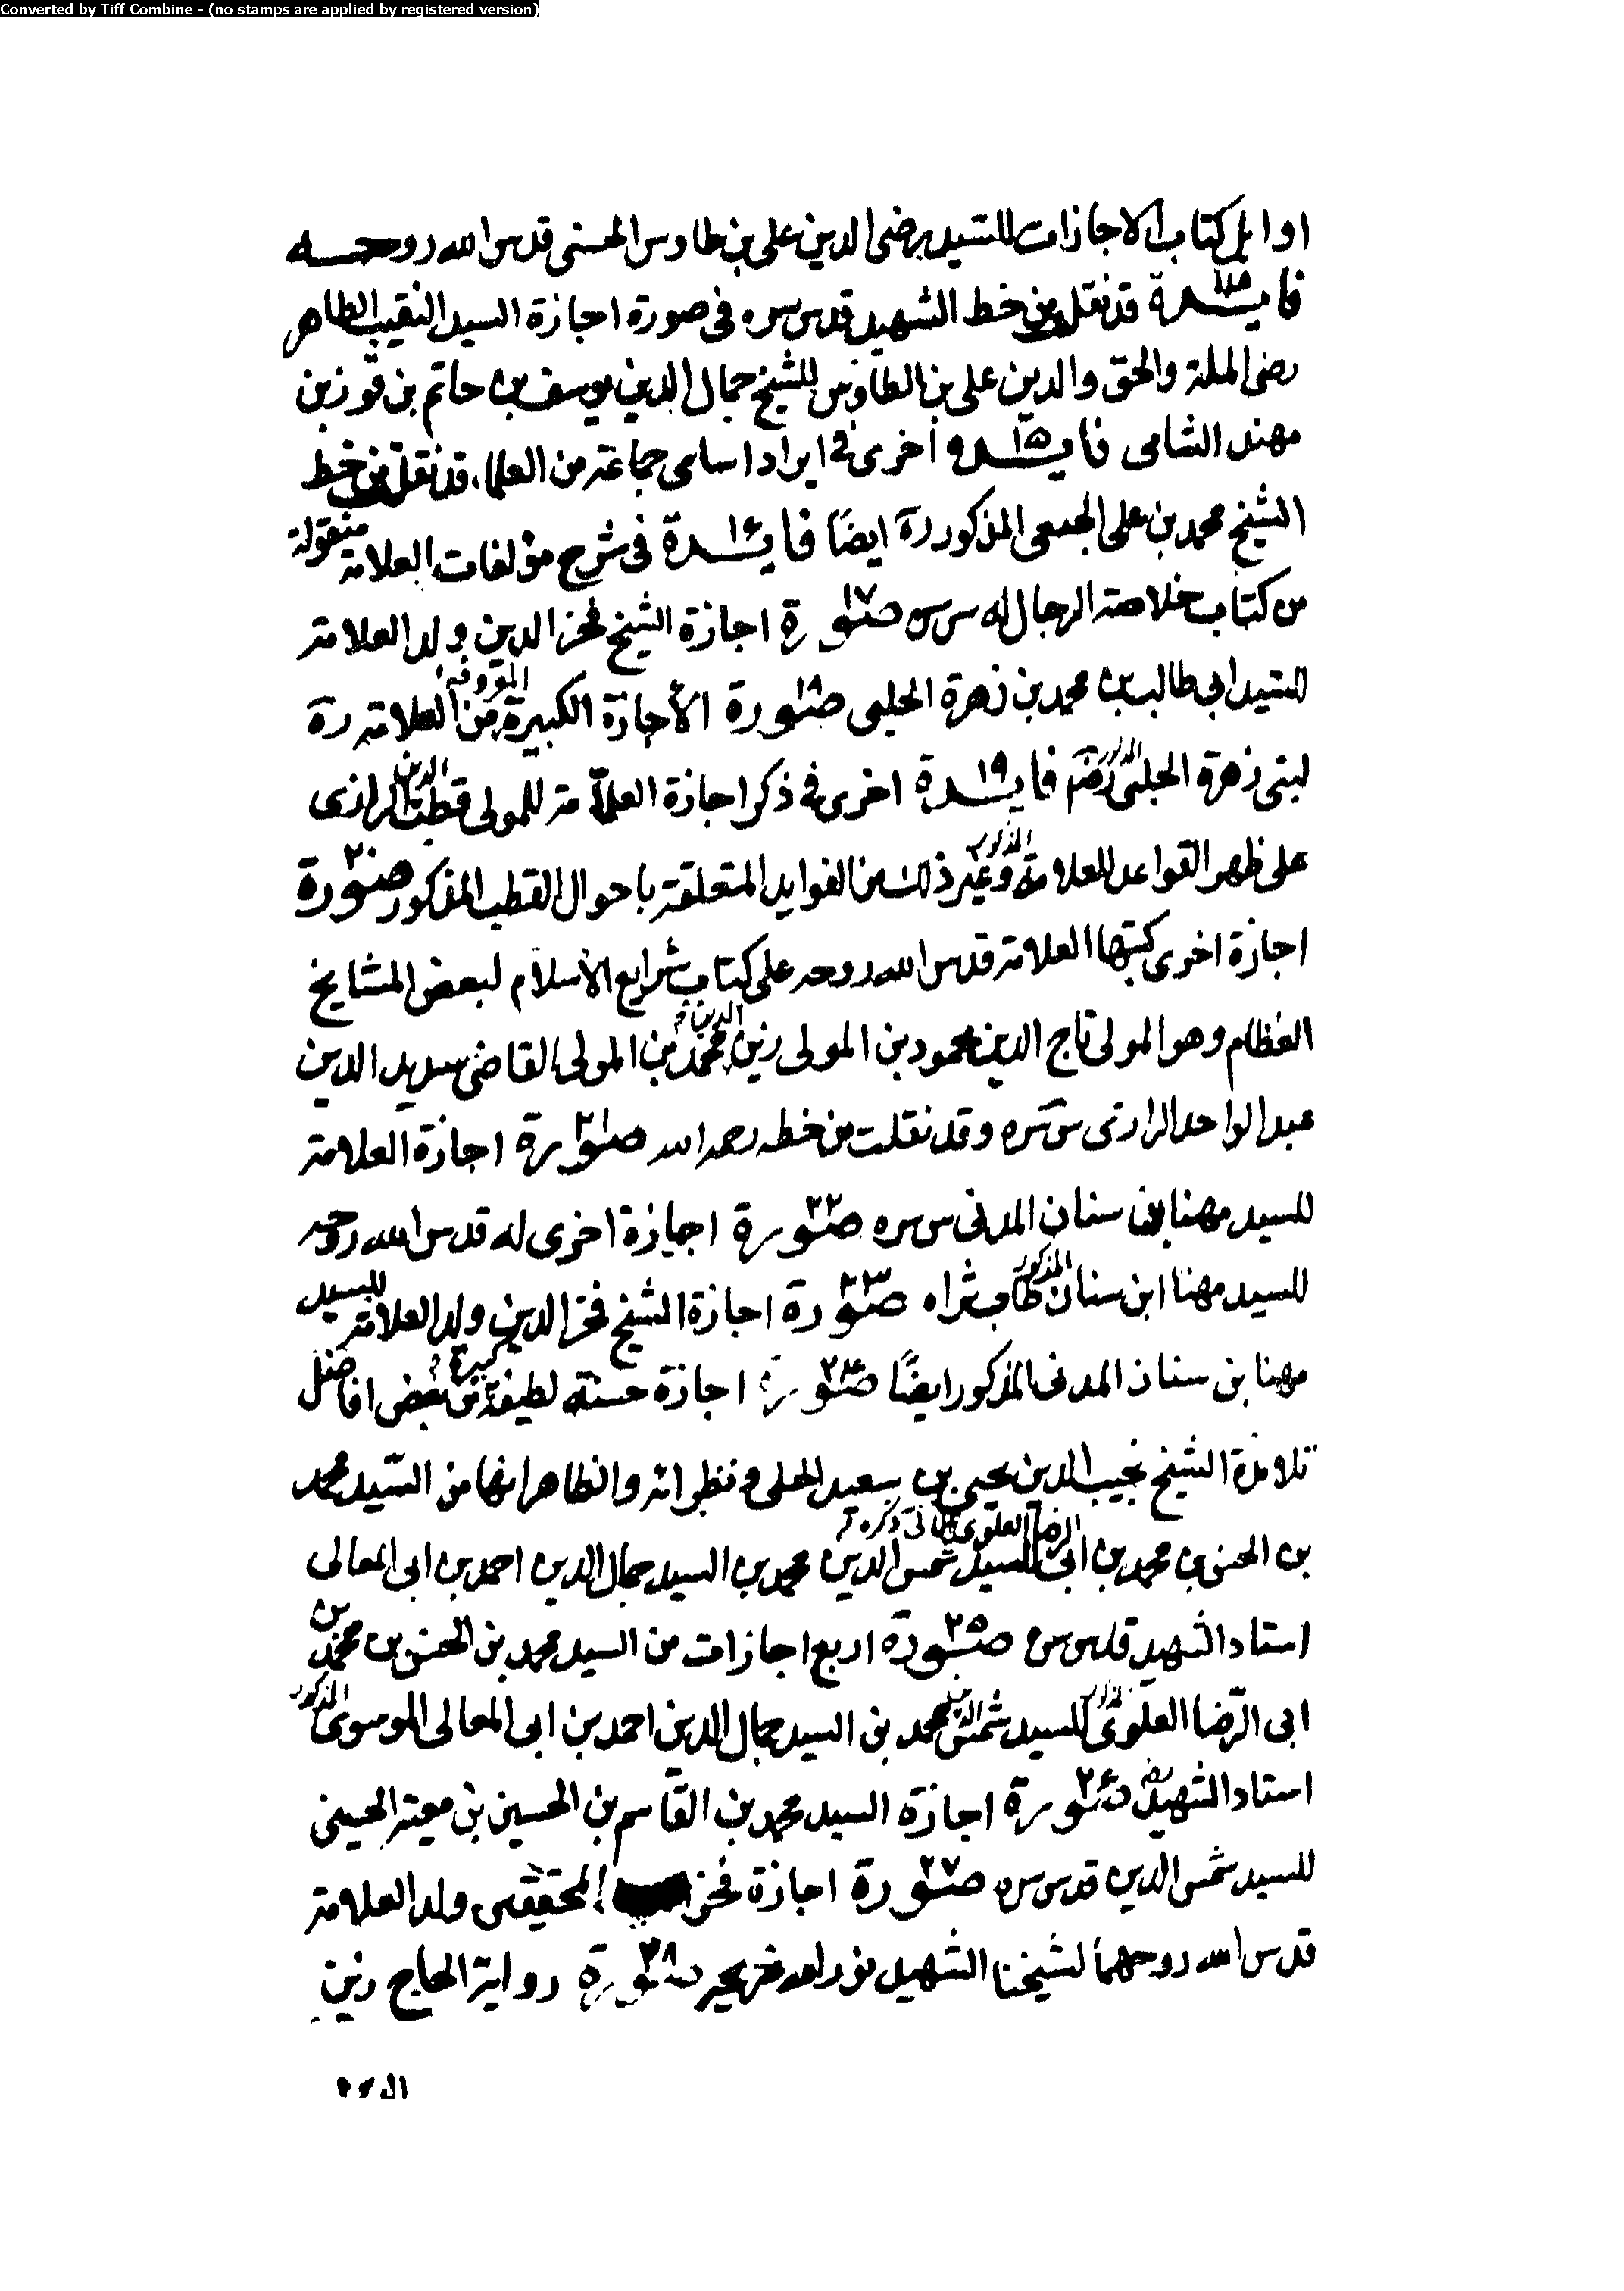 Converted by Tiff Combine - (no stamps are applied by registered version)
اوايل كتاب الاجازات للسيد رضى الدين على بن طاوس الحسنى قدس الله روحـــه
فايـدة قد نقل من خط الشهيد قدس سره فى صورة اجازة السيد النقيب الطاهر
رضى الملة والحق والدين على بن الطاوس للشيخ جمال الدين يوسف بن حاتم بن فوز بن
مهند الشامى فايـدة ١٥ اخرى فى ايراد اسامى جماعة من العلماء قد نقل من خط
الشيخ محمد بن على الجبعى المذكور ره ايضا فايـدة ١٦ فى شرح مؤلفات العلامة منقولة
من كتاب خلاصة الرجال له س سره صورة ١٧ اجازة الشيخ فخر الدين ولد العلامة
للسيد ابى طالب بن محمد بن زهرة الحلبى صورة ١٨ الأجازة الكبيرة المعروفة من العلامة ره
لبنى زهرة الحلبى فايـدة ١٩ اخرى فى ذكر اجازة العلّامة للمولى قطب الدين الرازى
على ظهر القواعد للعلامة المذكور وغير ذلك من الفوايد المتعلقة باحوال القطب المذكور صورة ٢٠
اجازة اخرى كتبها العلامة قدس الله روحه على كتاب شرايع الأسلام لبعض المشايخ
العظام وهو المولى تاج الدين محمود بن المولى زين الدين محمد بن المولى القاضى سديد الدين
عبد الواحد الرازى س سره وقد نقلت من خطه رحمه الله صورة ٢١ اجازة العلامة
للسيد مهنا بن سنان المدنى س سره صورة ٢٢ اجازة اخرى له قدس الله روحه
للسيد مهنا ابن سنان المذكور طاب ثراه صورة ٢٣ اجازة الشيخ فخر الدين ولد العلامة للسيد
مهنا بن سنان المدنى المذكور ايضًا صورة ٢٤ اجازة حسنة لطيفة كبيرة من بعض افاضل
تلامذة الشيخ نجيب الدين يحيى بن سعيد الحلى و نظرائه والظاهر انها من السّيد محمد
بن الحسن بن محمد بن ابى الرضا العلوى الاتى ذكره للسيد شمس الدين محمد بن السيد جمال الدين احمد بن ابى المعالى
استاد الشهيد قدس سره صورة ٢٥ اربع اجازات من السيد محمد بن الحسن بن محمد بن
ابى الرّضا العلوى المذكور للسيد شمس الدين محمد بن السيد جمال الدين احمد بن ابى المعالى الموسوى المذكور
استاد الشهيد صورة ٢٦ اجازة السيد محمد بن القاسم بن الحسين بن معية الحسينى
للسيد شمس الدين قدس سره صورة ٢٧ اجازة فخر المحققين ولد العلامة
قدس الله روحهما لشيخنا الشهيد نور الله ضريحه صورة ٢٨ رواية الحاج زين
الدين